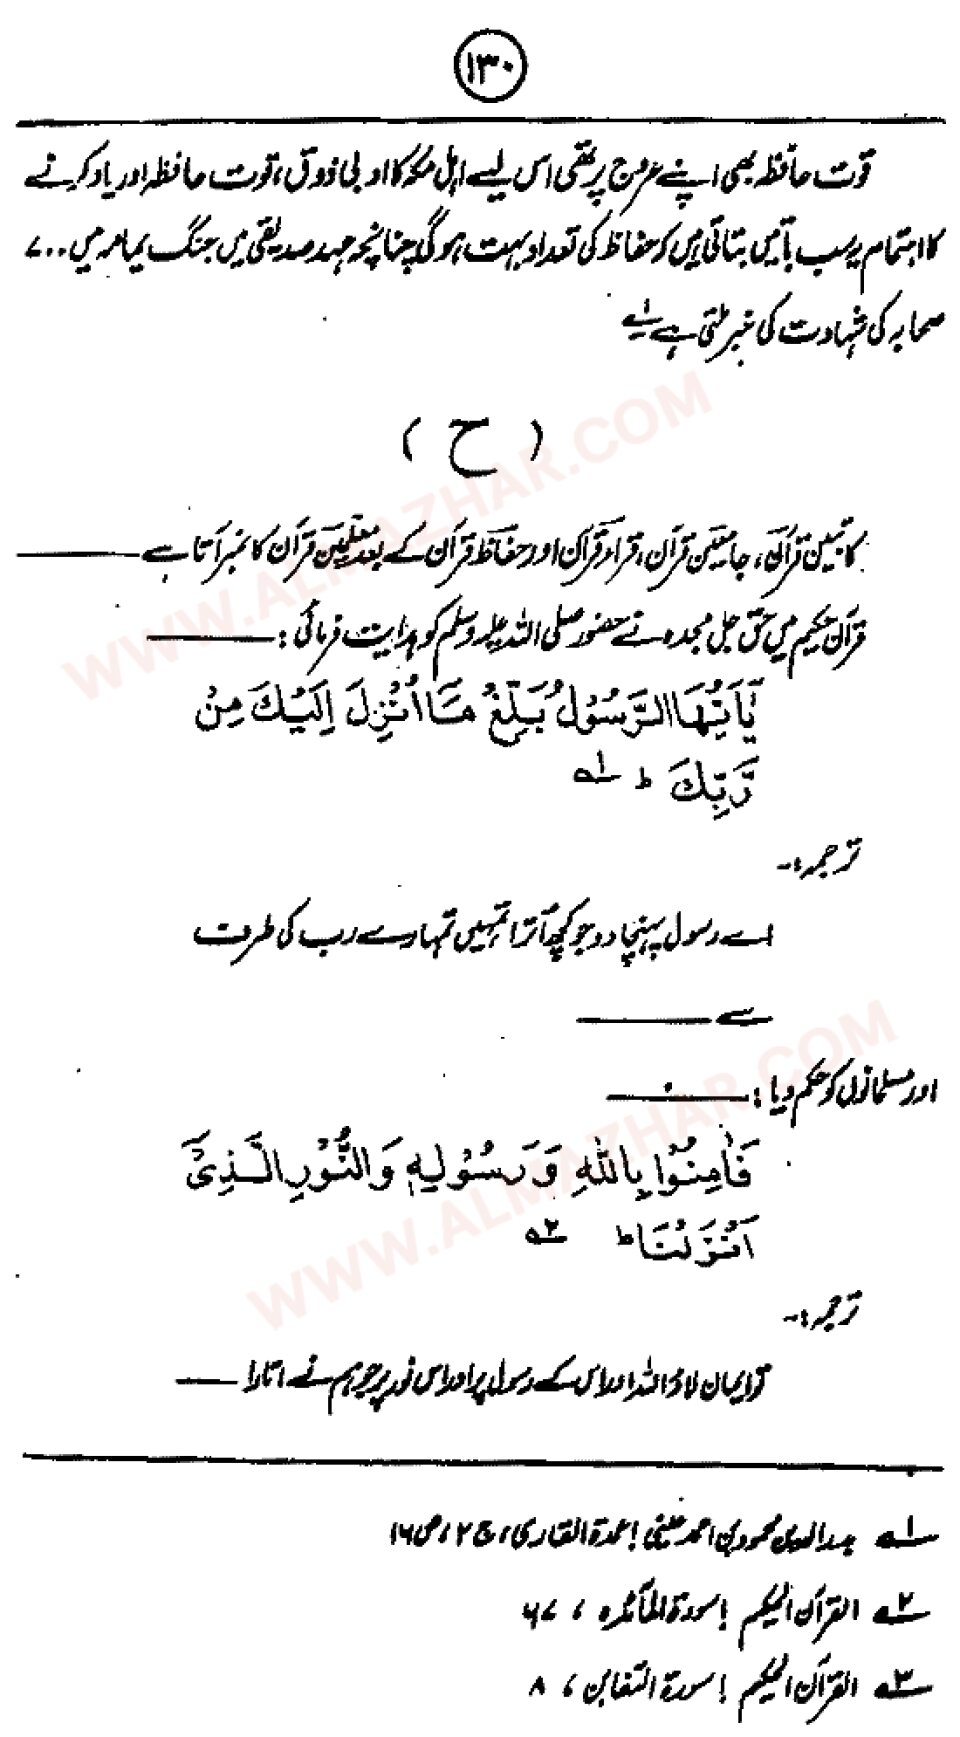 ۱۳۰
قوت حافظہ بھی اپنے عروج پر تھی اس لیے اہل مکہ کا ادبی ذوق، قوت حافظہ اور یاد کرنے
کا اہتمام یہ سب باتیں بتاتی ہیں کہ حفاظ کی تعداد بہت ہوگی چنانچہ عہد صدیقی میں جنگ یمامہ میں ۷۰۰
صحابہ کی شہادت کی خبر ملتی ہے ۱؎
( ح )
کاتبین قرآن، جامعین قرآن، قراء قرآن اور حفاظ قرآن کے بعد معلمین قرآن کا نمبر آتا ہے ـــــ
قرآن حکیم میں حق جل مجدہ نے حضور صلی اللہ علیہ وسلم کو ہدایت فرمائی : ـــــ
يٰٓاَيُّهَا الرَّسُوْلُ بَلِّغْ مَآ اُنْزِلَ اِلَيْكَ مِنْ
رَّبِّكَ ؕ ۱؎
ترجمہ :-
اے رسول پہنچا دو جو کچھ اُترا تمہیں تمہارے رب کی طرف
سے ـــــ
اور مسلمانوں کو حکم دیا : ـــــ
فَاٰمِنُوْا بِاللّٰهِ وَرَسُوْلِهٖ وَالنُّوْرِ الَّذِيْٓ
اَنْزَلْنَا ؕ ۲؎
ترجمہ :-
تو ایمان لاؤ اللہ اور اس کے رسول پر اور اس نور پر جو ہم نے اتارا ـــــ
۱؎ بدر الدین محمود بن احمد عینی ! عمدۃ القاری، ج ۲، ص ۱۶
۲؎ القرآن الحکیم ! سورۃ المآئدہ ، ۶۷
۳؎ القرآن الحکیم ! سورۃ التغابن ، ۸
WWW.ALMAZHAR.COM
WWW.ALMAZHAR.COM